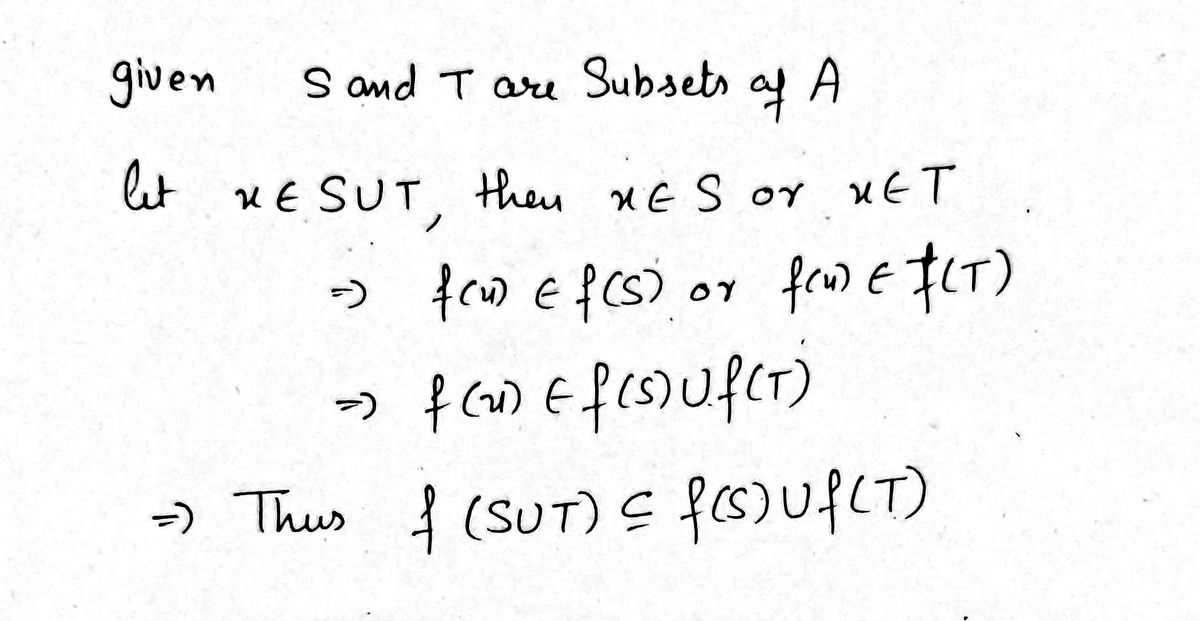 given S and T are Subsets of A
let x ∈ S∪T, then x ∈ S or x ∈ T
⇒ f(x) ∈ f(S) or f(x) ∈ f(T)
⇒ f(x) ∈ f(S) ∪ f(T)
⇒ Thus f (S∪T) ⊆ f(S) ∪ f(T)